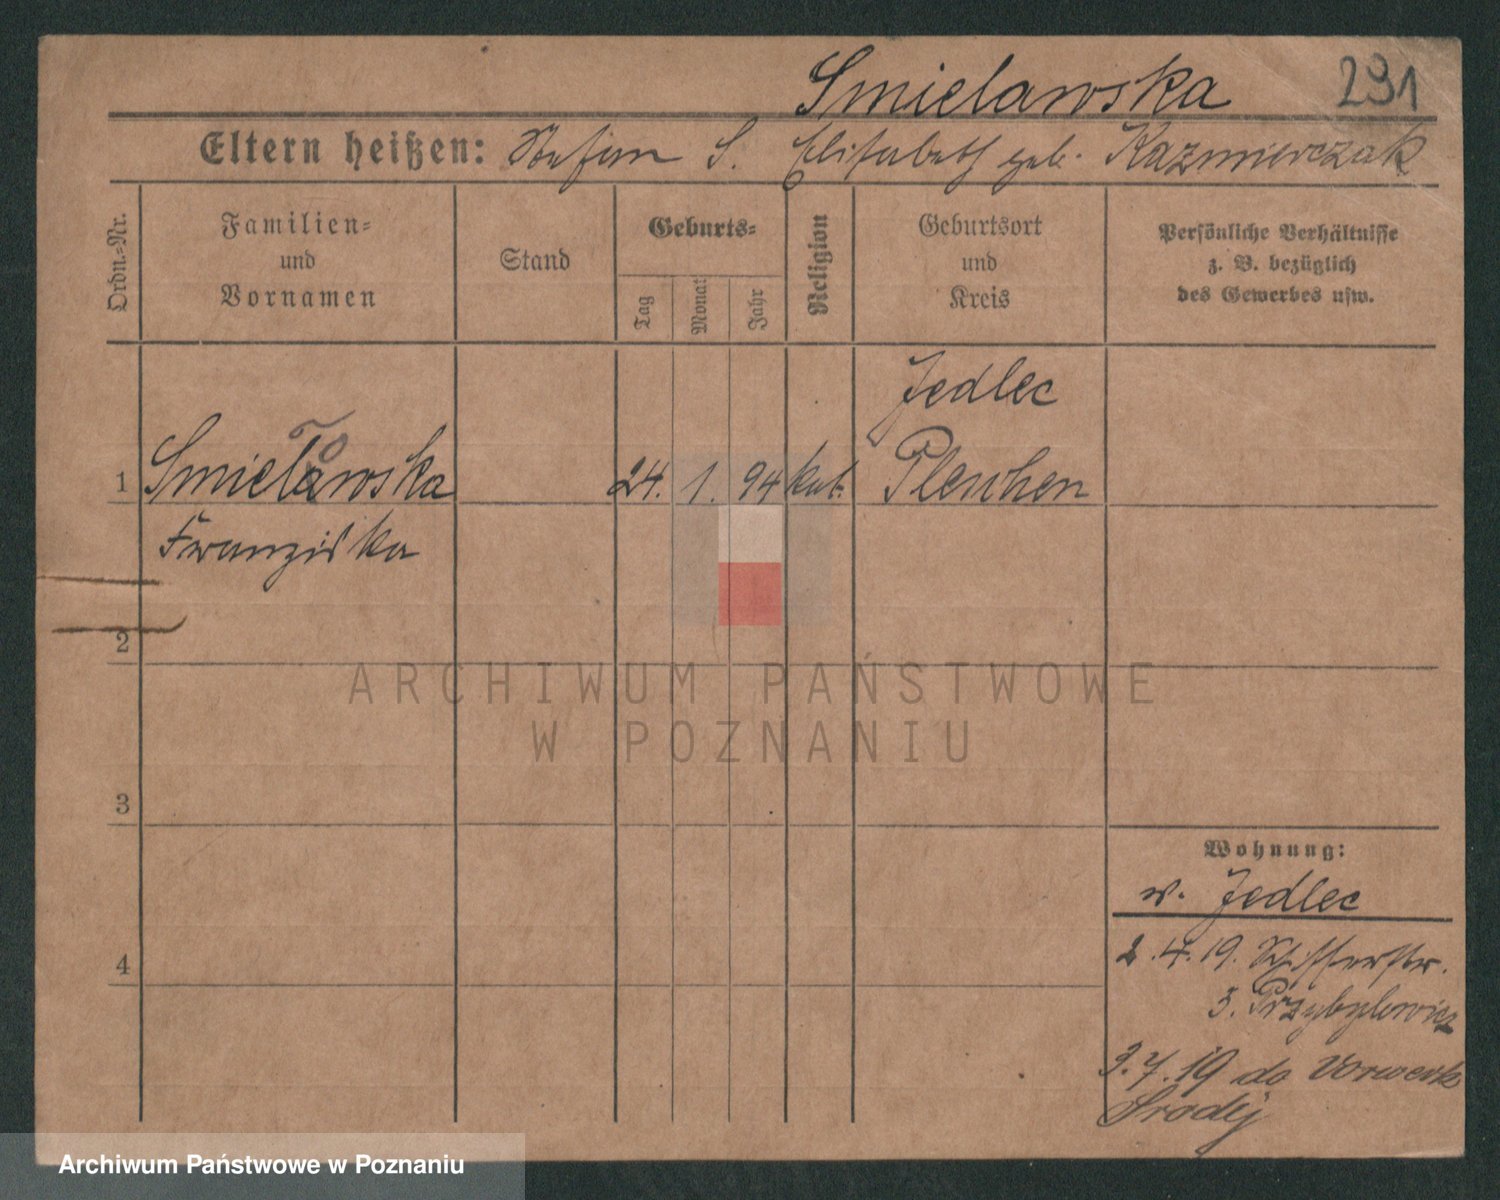 Smielawska 291
Eltern heißen: Stefan S. Elisabeth geb. Kazmierczak
Ordn.-Nr.
Familien-
und
Vornamen
Stand
Geburts-
Tag
Monat
Jahr
Religion
Geburtsort
und
Kreis
Persönliche Verhältnisse
z. B. bezüglich
des Gewerbes usw.
Jedlec
1 Smielawska 24. 1. 94 kat. Pleschen
Franziska
2
ARCHIWUM PAŃSTWOWE
W POZNANIU
3
Wohnung:
w. Jedlec
4
2.4.19. Schifferstr.
3. Przybylowicz
3.7.19 do Vorwerk
Srodej
Archiwum Państwowe w Poznaniu